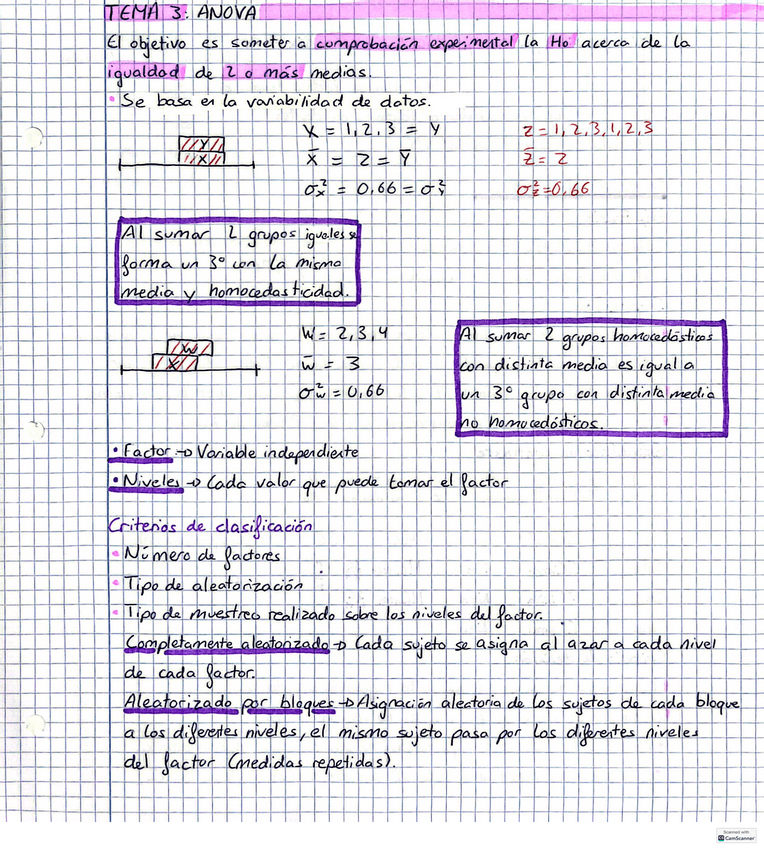 TEMA 3: ANOVA
El objetivo es someter a comprobación experimental la Ho acerca de la
igualdad de 2 o más medias.
• Se basa en la variabilidad de datos.
X = 1,2,3 = Y
z = 1,2,3,1,2,3
Y
X
X̄ = 2 = Ȳ
z̄ = 2
σ²x = 0,66 = σ²y
σ²z = 0,66
Al sumar 2 grupos iguales se
forma un 3º con la misma
media y homocedasticidad.
W = 2,3,4
W
X
w̄ = 3
σ²w = 0,66
Al sumar 2 grupos homocedásticos
con distinta media es igual a
un 3º grupo con distinta media
no homocedósticos.
• Factor → Variable independiente
• Niveles → Cada valor que puede tomar el factor
Criterios de clasificación
• Número de factores
• Tipo de aleatorización
• Tipo de muestreo realizado sobre los niveles del factor.
Completamente aleatorizado → Cada sujeto se asigna al azar a cada nivel
de cada factor.
Aleatorizado por bloques → Asignación aleatoria de los sujetos de cada bloque
a los diferentes niveles, el mismo sujeto pasa por los diferentes niveles
del factor (medidas repetidas).
Scanned with
CS CamScanner